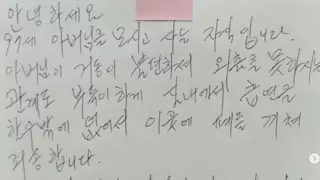 안녕하세요
97세 아버님을 모시고 사는 자식입니다.
아버님이 거동이 불편하셔 외출을 못하시는
관계로 부득이하게 실내에서 흡연을
할수밖에 없어서 이웃에 폐를 끼쳐
죄송합니다.